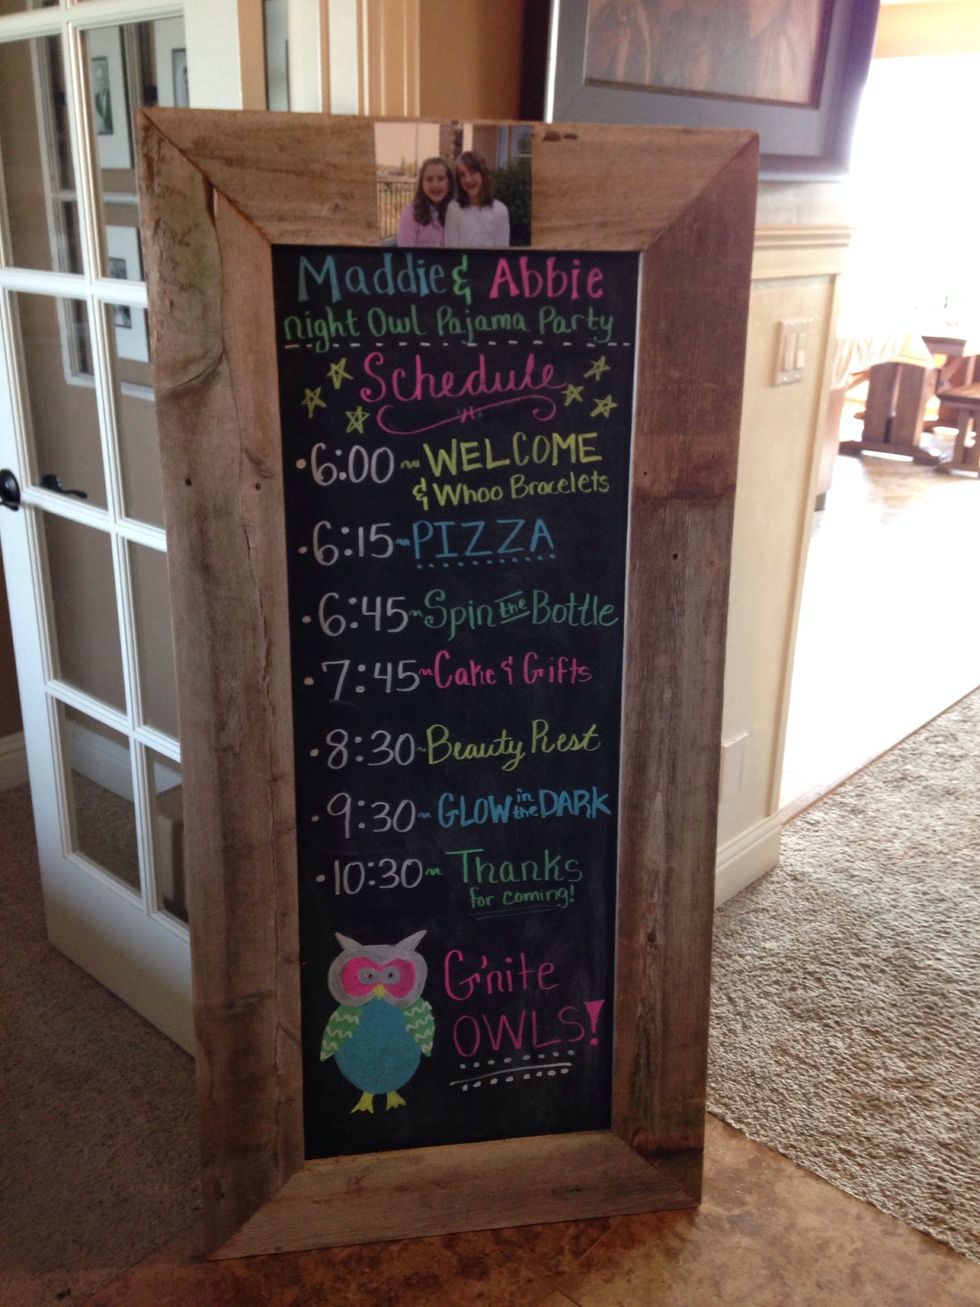 Maddie & Abbie
night Owl Pajama Party
Schedule
•6:00~WELCOME
& Whoo Bracelets
•6:15~PIZZA
•6:45~Spin the Bottle
•7:45~Cake & Gifts
•8:30~Beauty Rest
•9:30~GLOW in the DARK
•10:30~Thanks
for coming!
G'nite
OWLS!